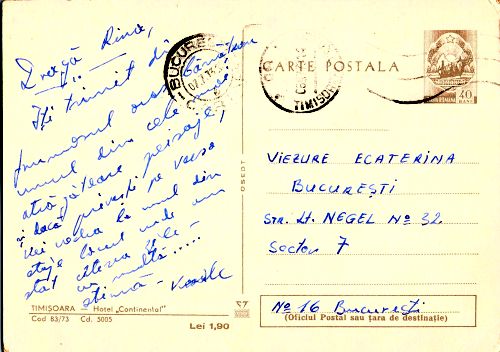 Dragă Rina,
Îți trimit din
frumosul oraș bănățean
unul din cele mai
atrăgătoare peisaje,
și dacă privești pe verso
vei vedea la unul din
etaje locul unde am
stat câteva zile -
cu multă.....
stimă -
TIMIȘOARA — Hotel „Continental"
Cod 83/73 Cd. 5005
Lei 1,90
OSEDT
BUCUREȘ
CARTE POSTALA
TIMIȘOA
40
BANI
VIEZURE ECATERINA
BUCUREȘTI
STR. Lt. NEGEL Nº 32
Sector 7
Nº 16 București
(Oficiul Postal sau țara de destinație)